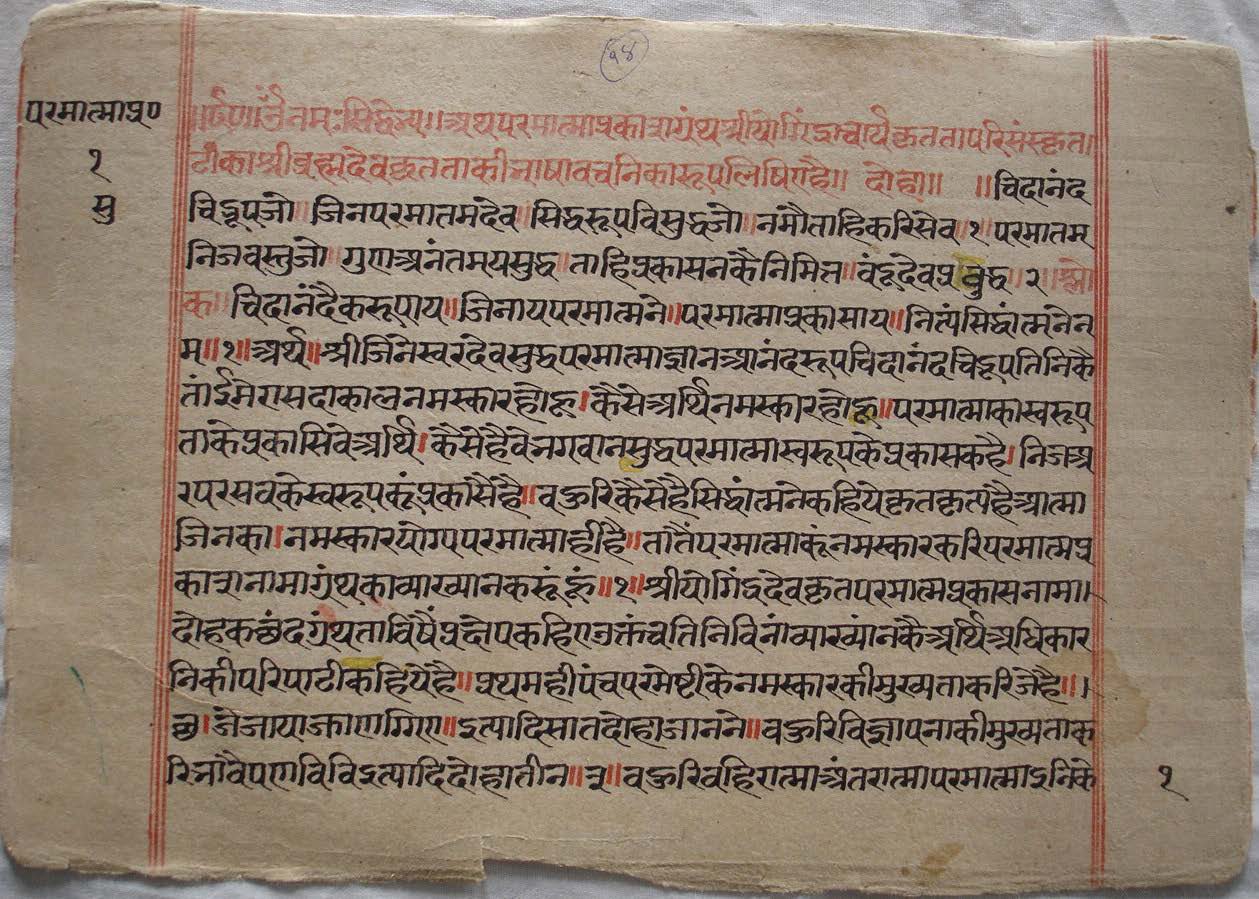 ६४
परमात्माप्र०
१
मु
॥र्द०॥ ॐ नमः सिद्धेभ्यः॥ अथपरमात्माप्रकाशग्रंथश्रीयोगिंद्राचार्यकृततापरिसंस्कृत।
टीकाश्रीब्रह्मदेवकृतताकीभाषावचनिकारूपलिषिएहै॥ दोहा॥ ॥चिदानंद
चिद्रूपजो॥ जिनपरमातमदेव॥ सिद्धरूपविसुद्धजो॥ नमौताहिकरिसेव॥१॥ परमातम
निजवस्तुजो॥ गुणअनंतमयसुद्ध॥ ताहिप्रकासनकैनिमित्त॥ वंदूदेवप्रबुद्ध॥२॥ श्लो
क॥ चिदानंदैकरूपाय॥ जिनायपरमात्मने॥ परमात्माप्रकासाय॥ नित्यंसिद्धांत्मनेन
म॥१॥ अर्थ॥ श्रीजिनेस्वरदेवसुद्धपरमात्माज्ञानआनंदरूपचिदानंदचिद्रूपतिनिकै
तांईमेरासदाकालनमस्कारहोहू। कैसेअर्थिनमस्कारहोहू॥ परमात्माकास्वरूप
ताकेप्रकासिवेअर्थि। कैसेहैवेभगवानसुद्धपरमात्मास्वरूपकेप्रकासकहै। निजअ
रपरसवकेस्वरूपकूंप्रकासैहै॥ वहुरिकैसेहैसिद्धांत्मनेकहियेकृतकृत्यहैआत्मा
जिनका। नमस्कारयोग्यपरमात्माहीहै॥ तातैंपरमात्माकूंनमस्कारकरिपरमात्मप्र
काशनामाग्रंथकाव्याख्यानकरूंहूं॥१॥ श्रीयोगिंद्रदेवकृतपरमात्मप्रकासनामा।
दोहकछंदग्रंथताविषैंप्रक्षेपकहिएउक्तंचतिनिविनांव्याख्यांनकैअर्थिअधिकार
निकीपरिपाटीकहियेहै॥ प्रथमहीपंचपरमेष्टीकेनमस्कारकीमुख्यताकरिजेहै॥।
छ। जेजायाझाणग्गिए॥ इत्यादिसातदोहाजानने॥ वहुरिविज्ञापनाकीमुख्यताक
रिभावैपणविविइत्यादिदोहातीन॥३॥ वहुरिवहिरात्माअंतरात्मापरमात्माइनिके
१